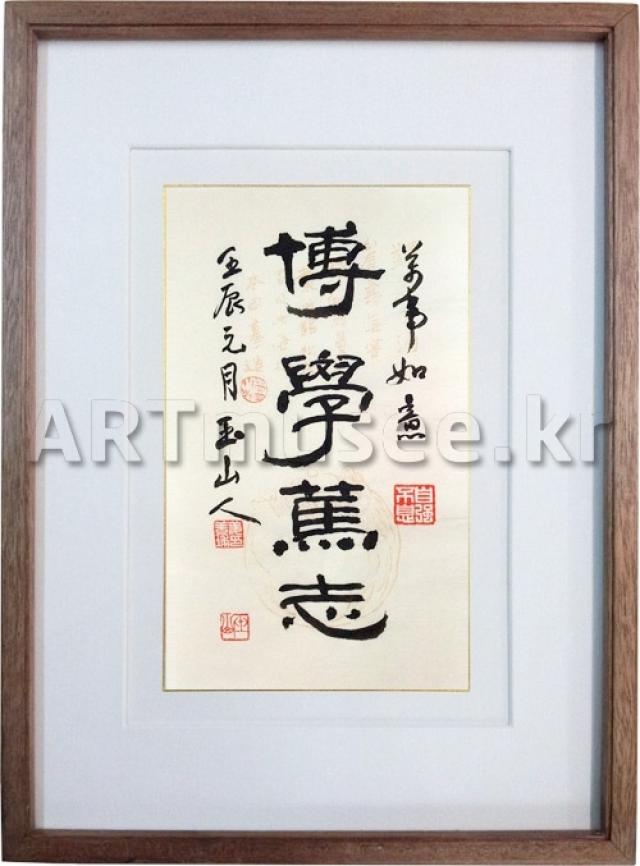 萬事如意
自强不息
博學篤志
壬辰元月 玉山人
玉山
ARTmusee.kr